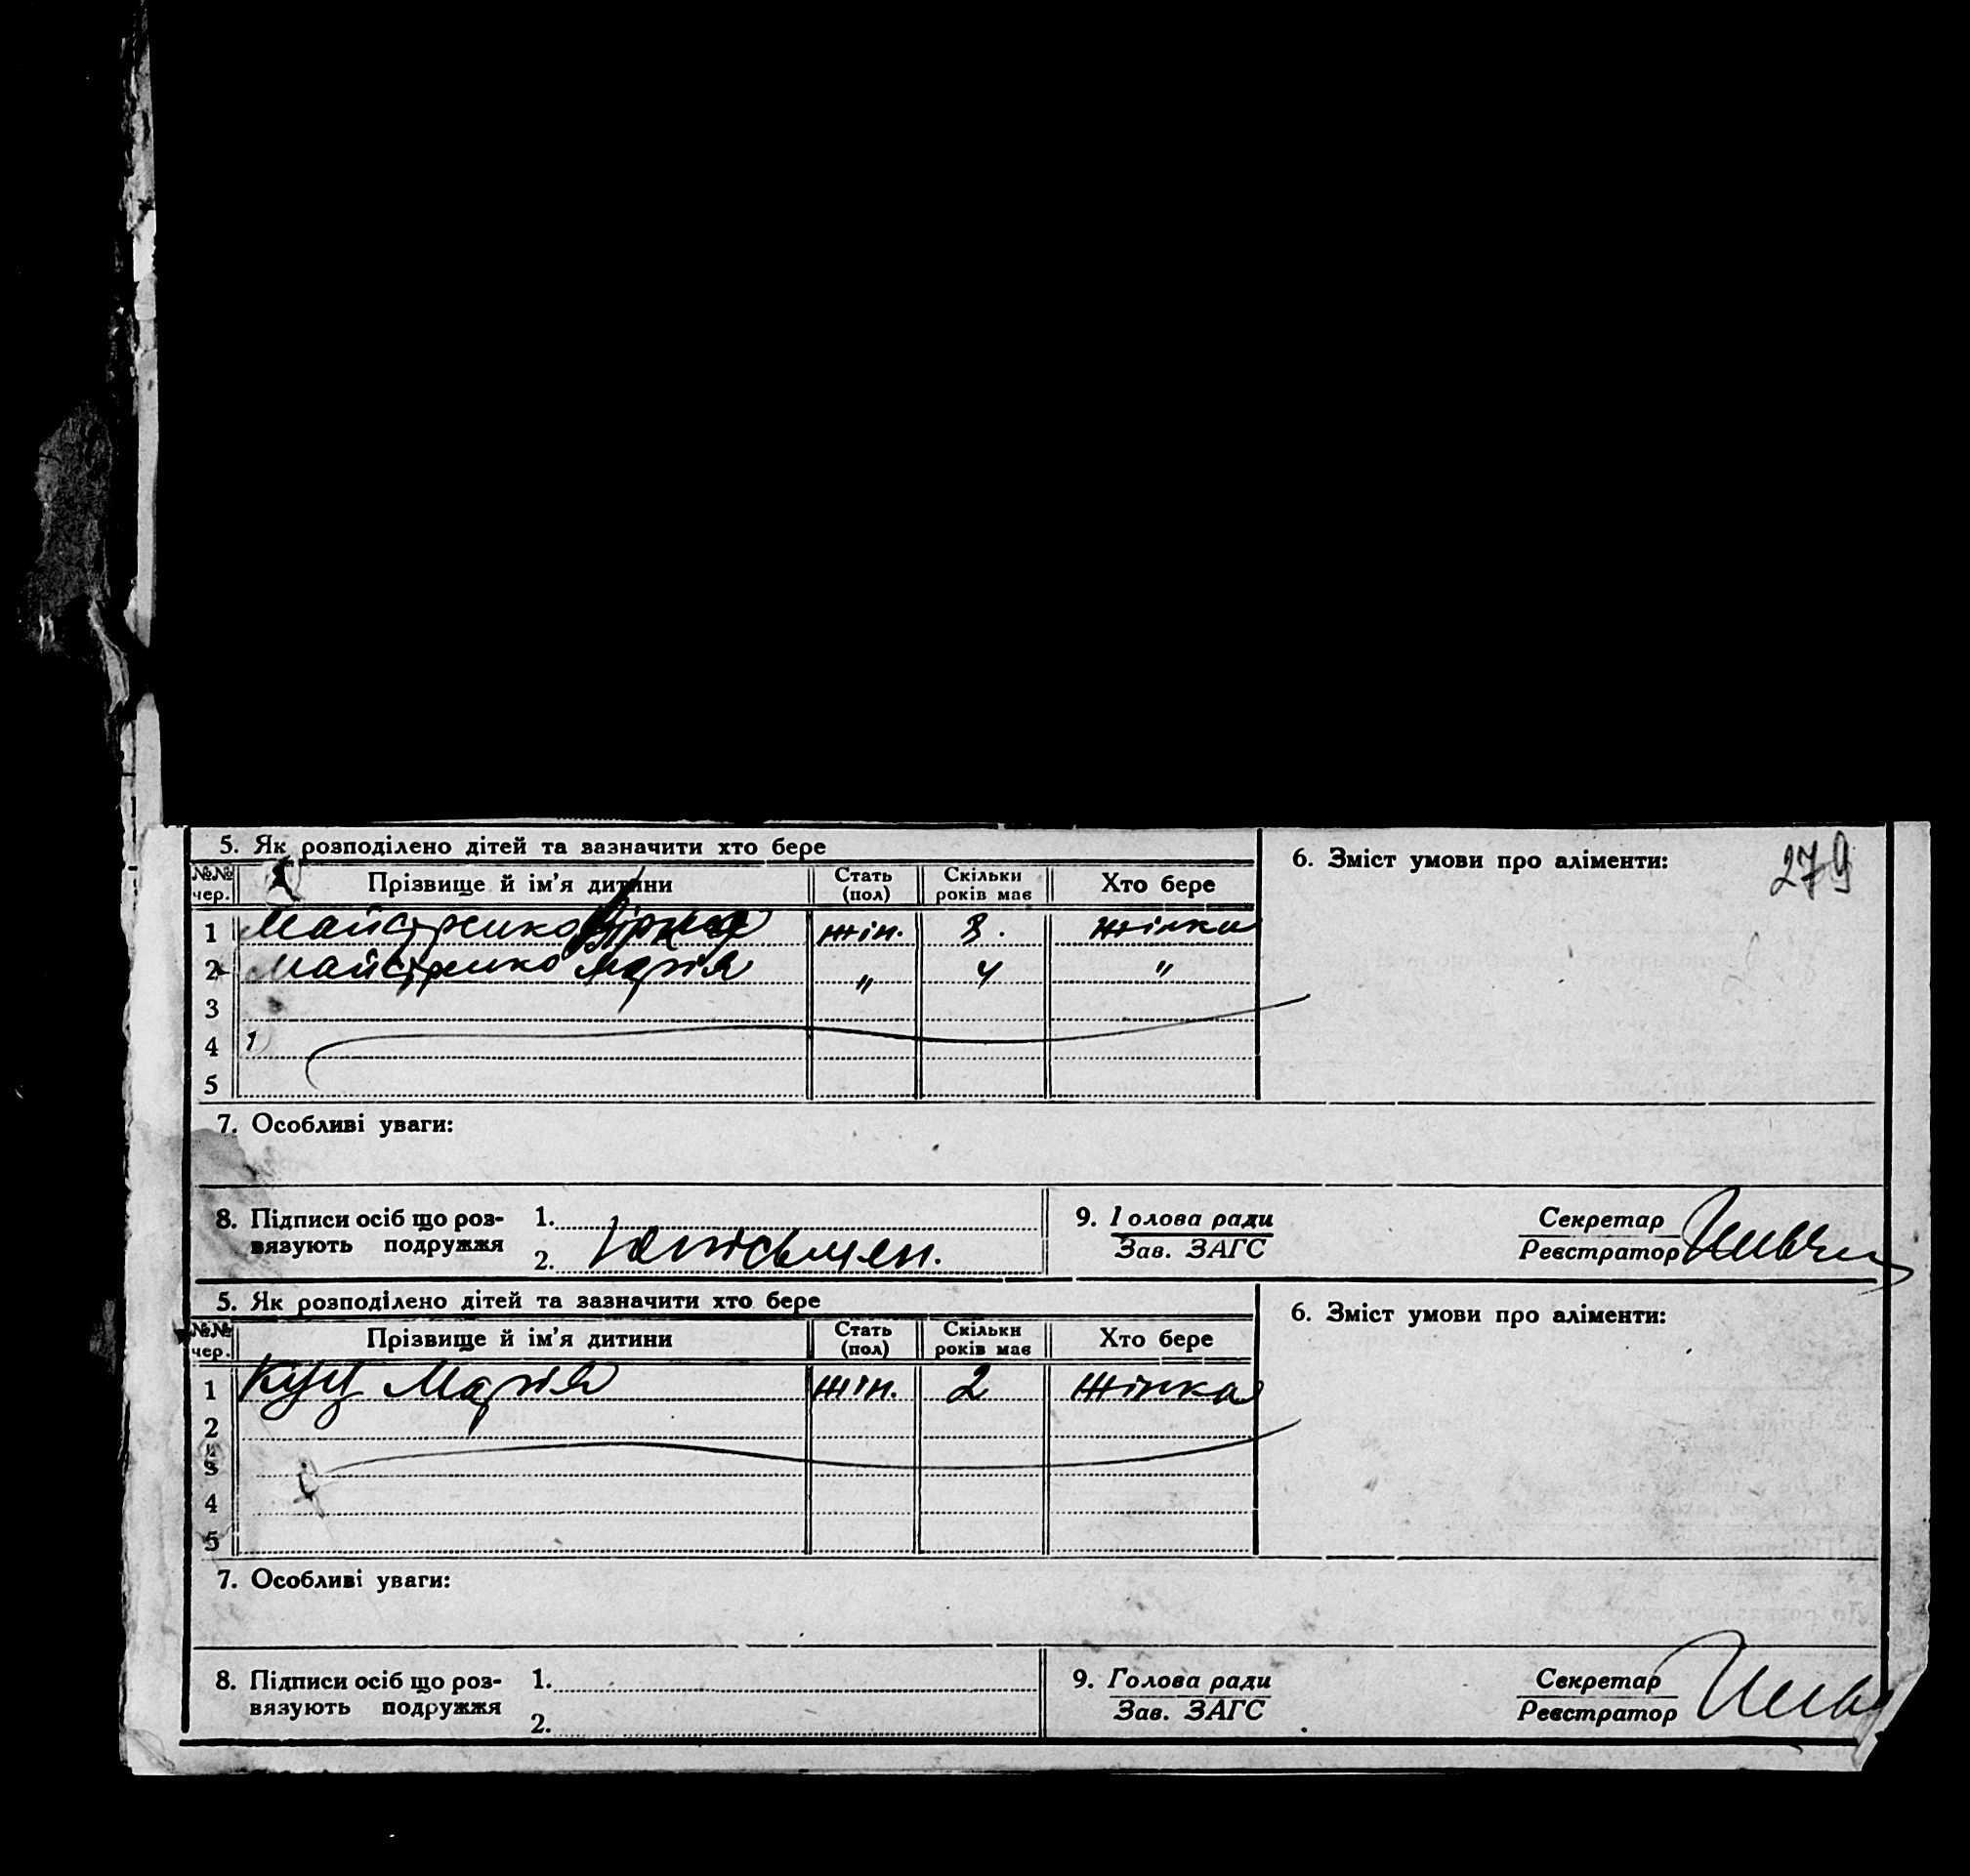 5. Як розподілено дітей та зазначити хто бере
6. Зміст умови про аліменти:
279
№№ чер.
Прізвище й ім'я дитини
Стать (пол)
Скільки років має
Хто бере
1 Майстренко жін. 3. жінка
2 Майстренко Марія " 4 "
3
4
5
7. Особливі уваги:
8. Підписи осіб що роз-
вязують подружжя
1.
2.
9. Голова ради
Зав. ЗАГС
Секретар
Реєстратор
5. Як розподілено дітей та зазначити хто бере
6. Зміст умови про аліменти:
№№ чер.
Прізвище й ім'я дитини
Стать (пол)
Скільки років має
Хто бере
1 Куц Марія жін. 2 жінка
2
3
4
5
7. Особливі уваги:
8. Підписи осіб що роз-
вязують подружжя
1.
2.
9. Голова ради
Зав. ЗАГС
Секретар
Реєстратор